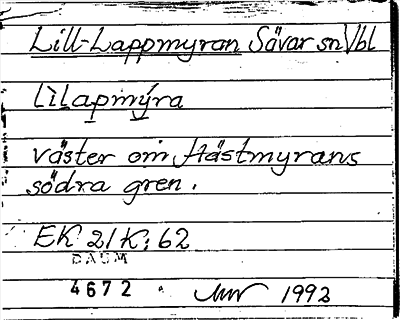 Lill-Lappmyran Sävar sn Vbl
lìlapmýra
väster om Hästmyrans
södra gren.
EK 21 K: 62
DAUM
4672 1992